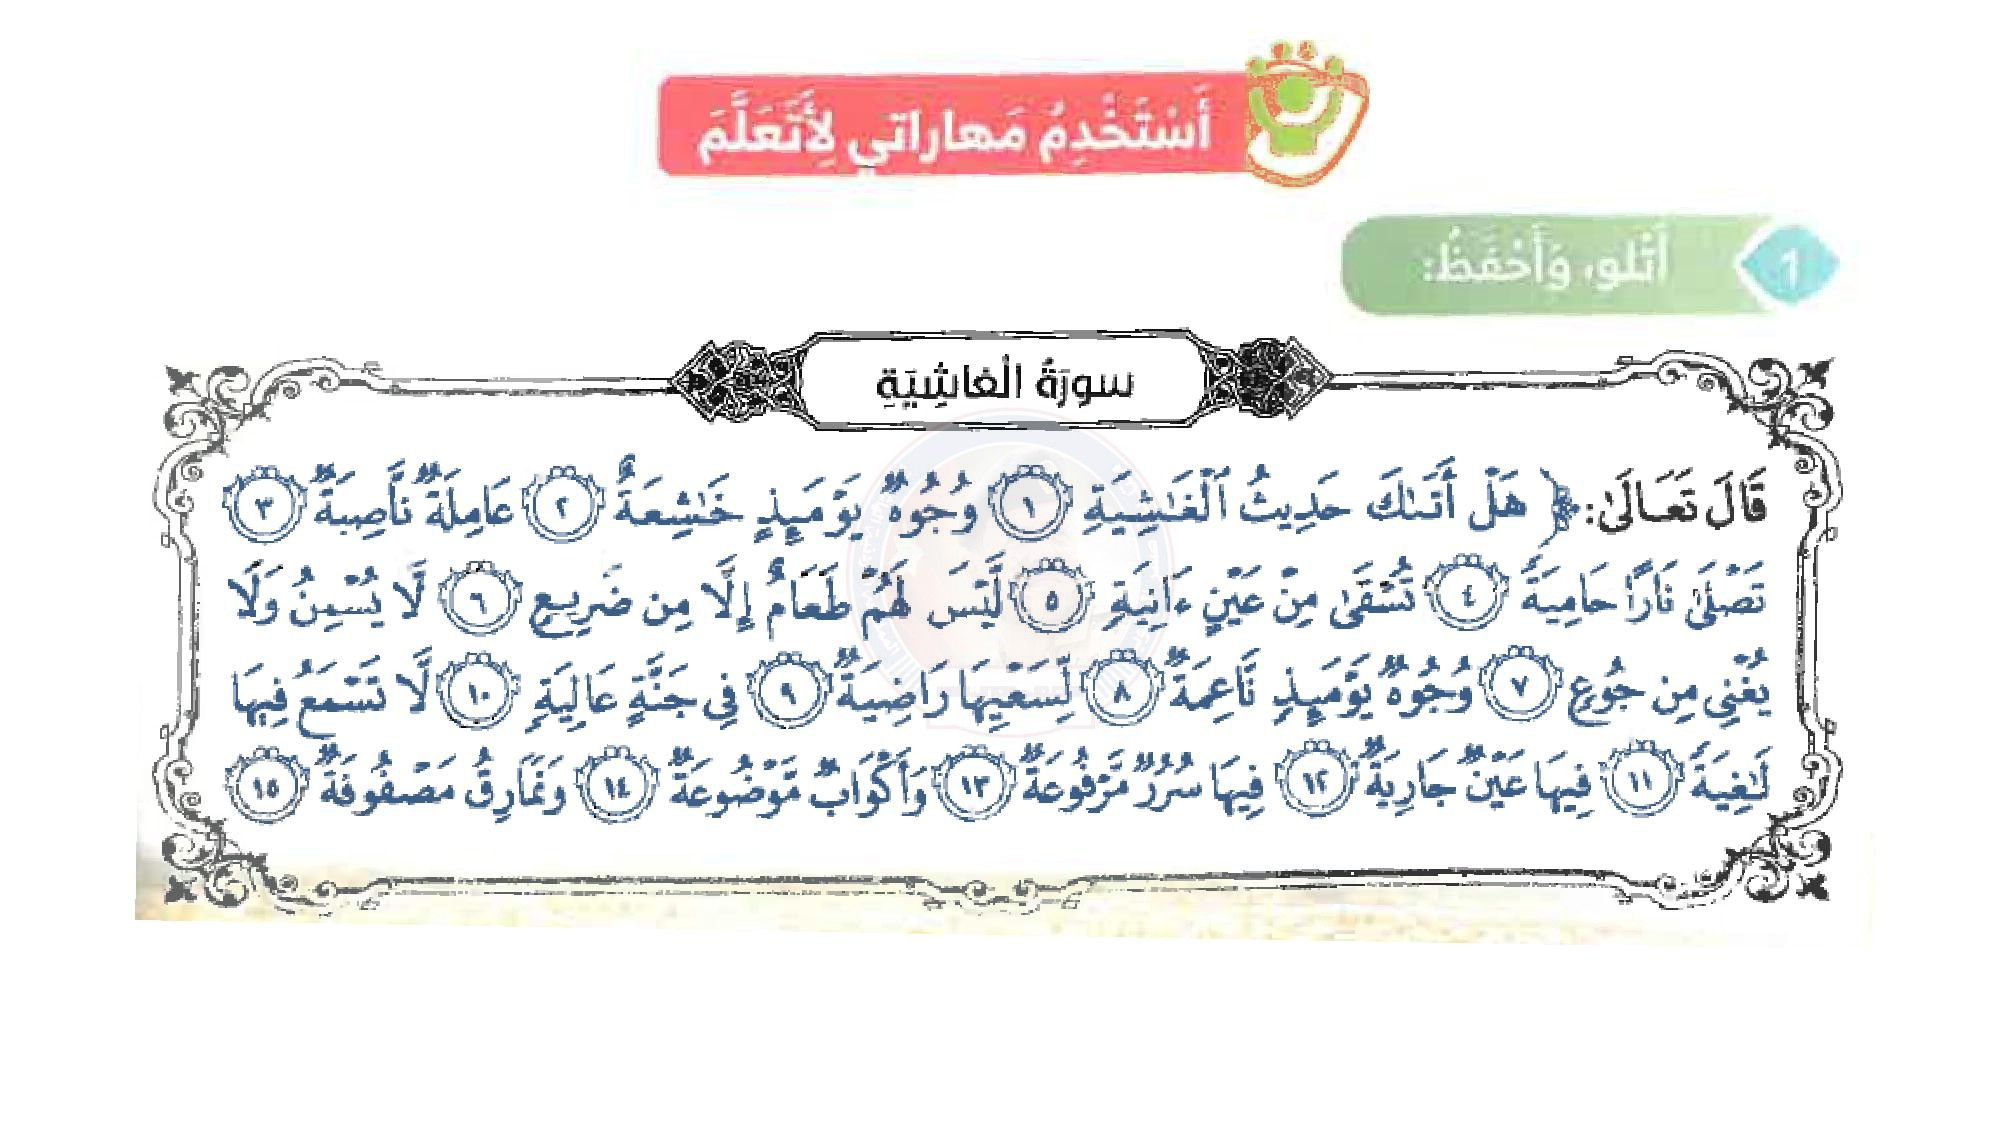 أَسْتَخْدِمُ مَهاراتي لِأَتَعَلَّمَ
1 أَتْلو، وَأَحْفَظُ:
سورَةُ الْغاشِيَةِ
قَالَ تَعَالَىٰ: ﴿ هَلْ أَتَىٰكَ حَدِيثُ ٱلْغَٰشِيَةِ ١ وُجُوهٌ يَوْمَئِذٍ خَٰشِعَةٌ ٢ عَامِلَةٌ نَّاصِبَةٌ ٣
تَصْلَىٰ نَارًا حَامِيَةً ٤ تُسْقَىٰ مِنْ عَيْنٍ ءَانِيَةٍ ٥ لَّيْسَ لَهُمْ طَعَامٌ إِلَّا مِن ضَرِيعٍ ٦ لَّا يُسْمِنُ وَلَا
يُغْنِى مِن جُوعٍ ٧ وُجُوهٌ يَوْمَئِذٍ نَّاعِمَةٌ ٨ لِّسَعْيِهَا رَاضِيَةٌ ٩ فِى جَنَّةٍ عَالِيَةٍ ١٠ لَّا تَسْمَعُ فِيهَا
لَٰغِيَةً ١١ فِيهَا عَيْنٌ جَارِيَةٌ ١٢ فِيهَا سُرُرٌ مَّرْفُوعَةٌ ١٣ وَأَكْوَابٌ مَّوْضُوعَةٌ ١٤ وَنَمَارِقُ مَصْفُوفَةٌ ١٥